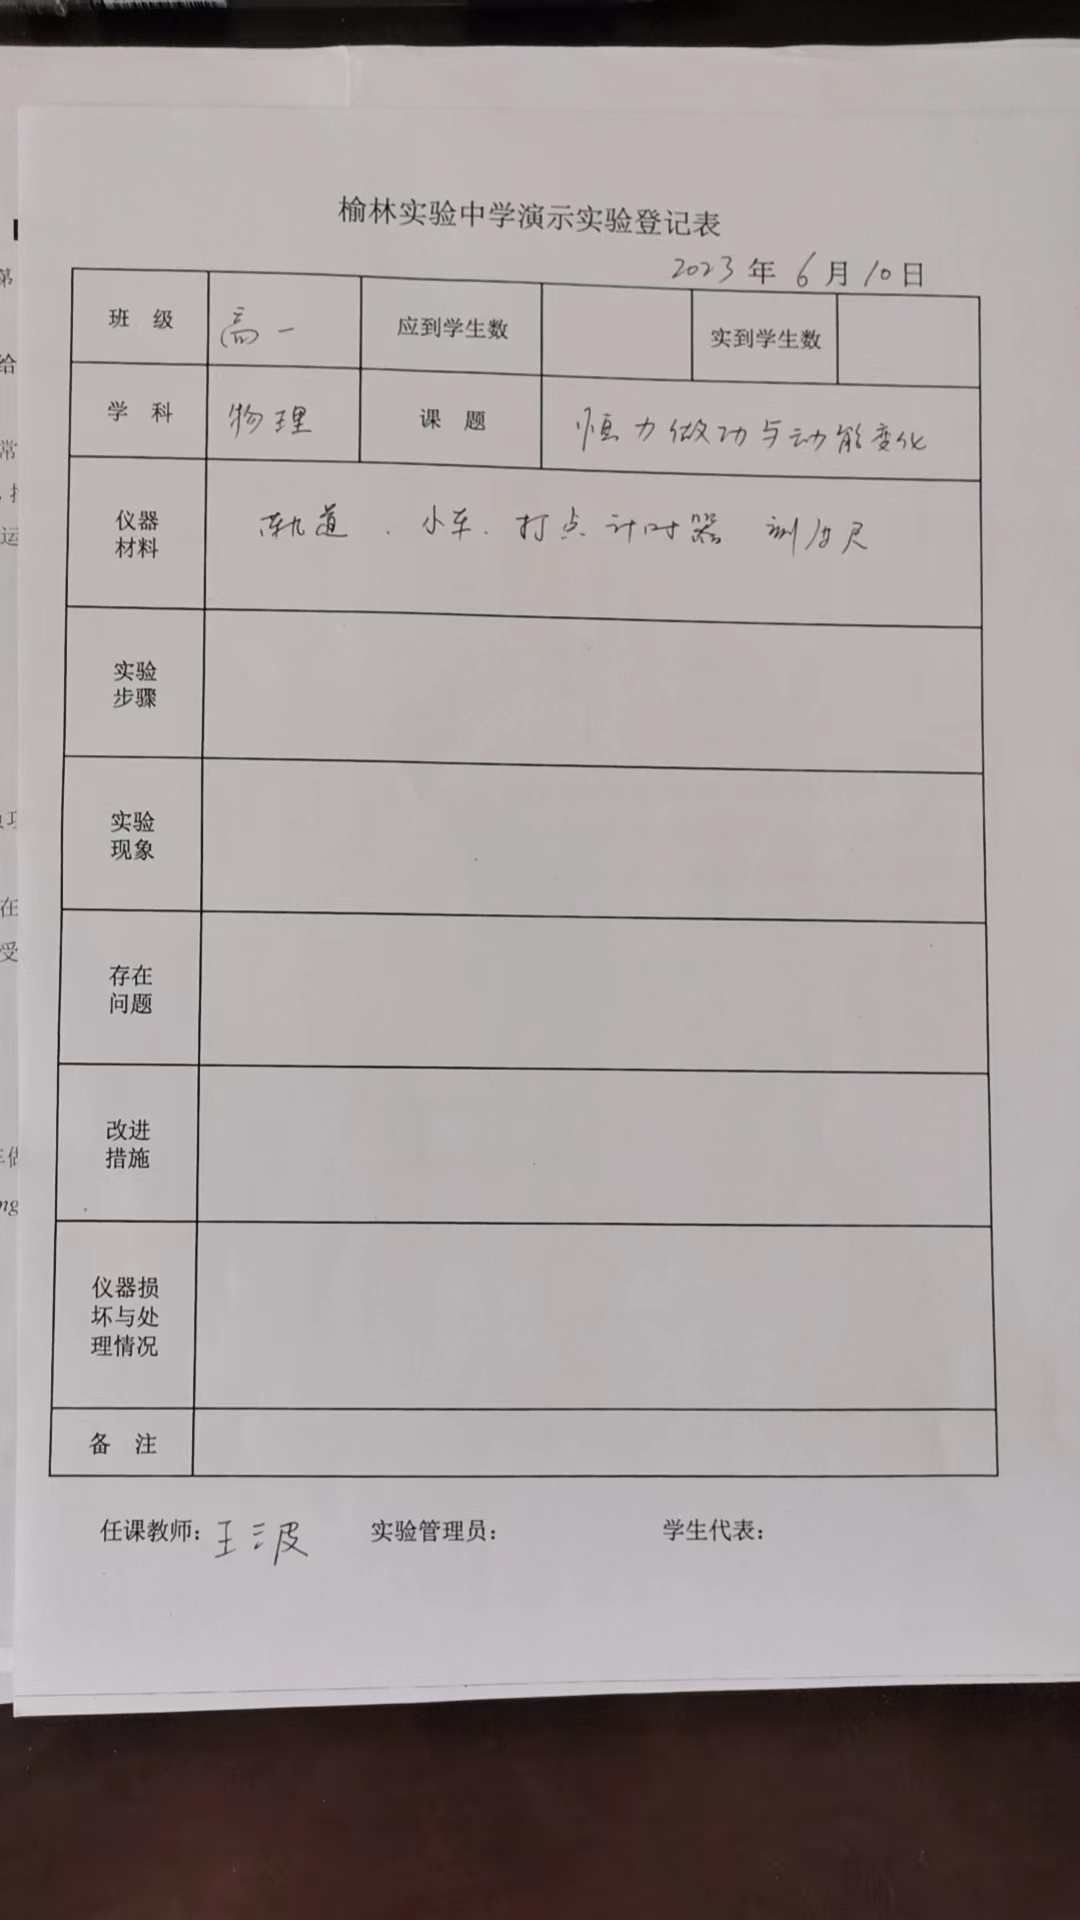 榆林实验中学演示实验登记表
2023年6月10日
班 级 高一 应到学生数 实到学生数
学 科 物理 课 题 恒力做功与动能变化
仪器
材料
轨道、小车、打点计时器 刻度尺
实验
步骤
实验
现象
存在
问题
改进
措施
仪器损
坏与处
理情况
备 注
任课教师：王波 实验管理员： 学生代表：
第
给
常
运
在
受
mg